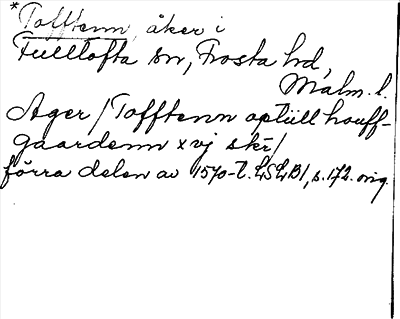 *Tofftenn, åker i
Fulltofta sn, Frosta hd,
Malm. l.
Ager / Tofftenn optill houff-
gaardenn xvj skr /
förra delen av 1570-t. LSLB1, s. 172. orig.